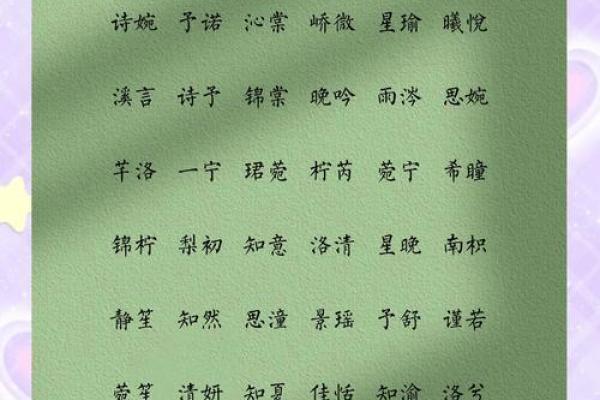 诗婉 予诺 沁棠 峤微 星瑜 曦悅
溪言 诗予 锦棠 晚吟 雨涔 思婉
芊洛 一宁 珺菀 柠芮 菀宁 希瞳
锦柠 梨初 知意 洛清 星晚 南枳
静笙 知然 思潼 景瑶 予舒 谨若
菀笙 清妍 知夏 佳恬 知渝 洛兮